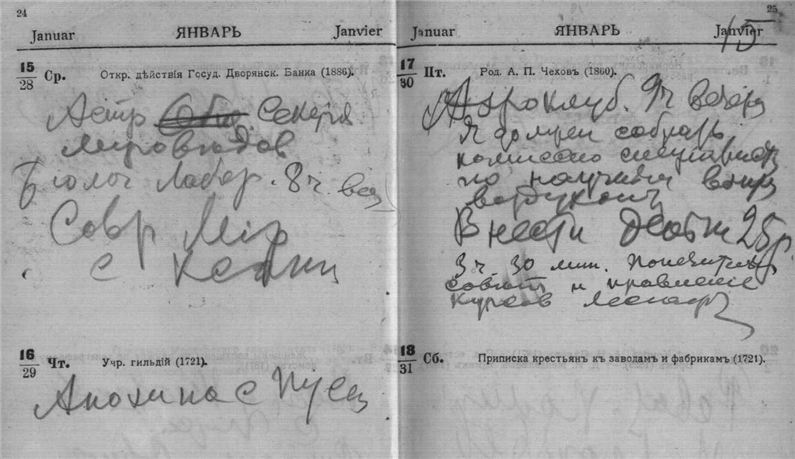 24
Januar ЯНВАРЬ Janvier
15/28 Ср. Откр. дѣйствія Госуд. Дворянск. Банка (1886).
Астр Секція
Мироведов
Биолог Лабор. 8 ч. веч
Совр Мір
с
16/29 Чт. Учр. гильдій (1721).
Анохина с
25
Januar ЯНВАРЬ Janvier
15
17/30 Пт. Род. А. П. Чеховъ (1860).
Аэроклуб. 9 ч вечера
Я должен собрать
комиссию специалист
по научным вопр
воздухопл
Внести 25 р.
3 ч. 30 мин. Попечит
совет и правление
курсов
18/31 Сб. Приписка крестьянъ къ заводамъ и фабрикамъ (1721).